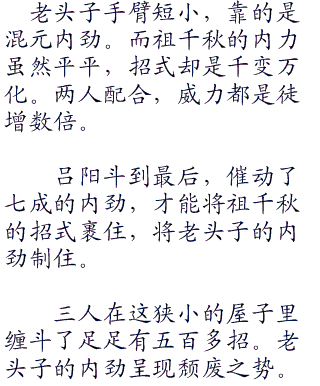 老头子手臂短小，靠的是
混元内劲。而祖千秋的内力
虽然平平，招式却是千变万
化。两人配合，威力都是徒
增数倍。
吕阳斗到最后，催动了
七成的内劲，才能将祖千秋
的招式裹住，将老头子的内
劲制住。
三人在这狭小的屋子里
缠斗了足足有五百多招。老
头子的内劲呈现颓废之势。